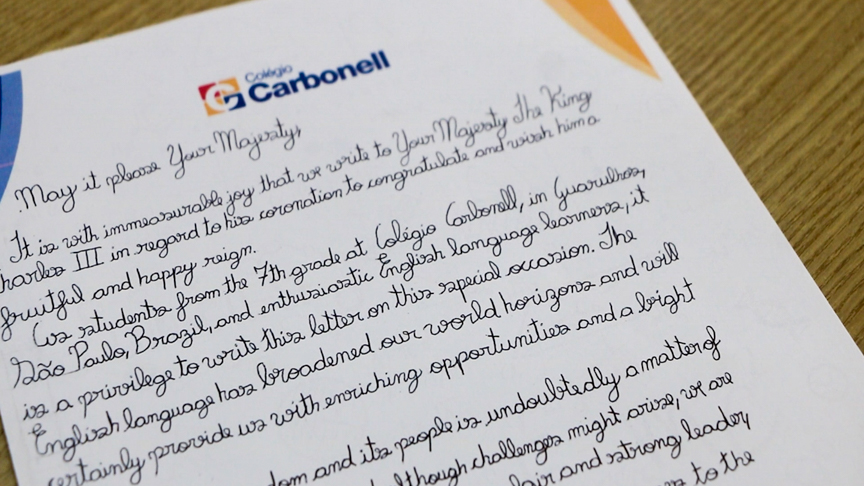 Colégio
Carbonell
May it please Your Majesty,
It is with immeasurable joy that we write to Your Majesty The King
harles III in regard to his coronation to congratulate and wish him a
fruitful and happy reign.
As students from the 7th grade at Colégio Carbonell, in Guarulhos,
São Paulo, Brazil, and enthusiastic English language learners, it
is a privilege to write this letter on this special occasion. The
English language has broadened our world horizons and will
certainly provide us with enriching opportunities and a bright
dom and its people is undoubtedly a matter of
lthough challenges might arise, we are
fair and strong leader,
to the